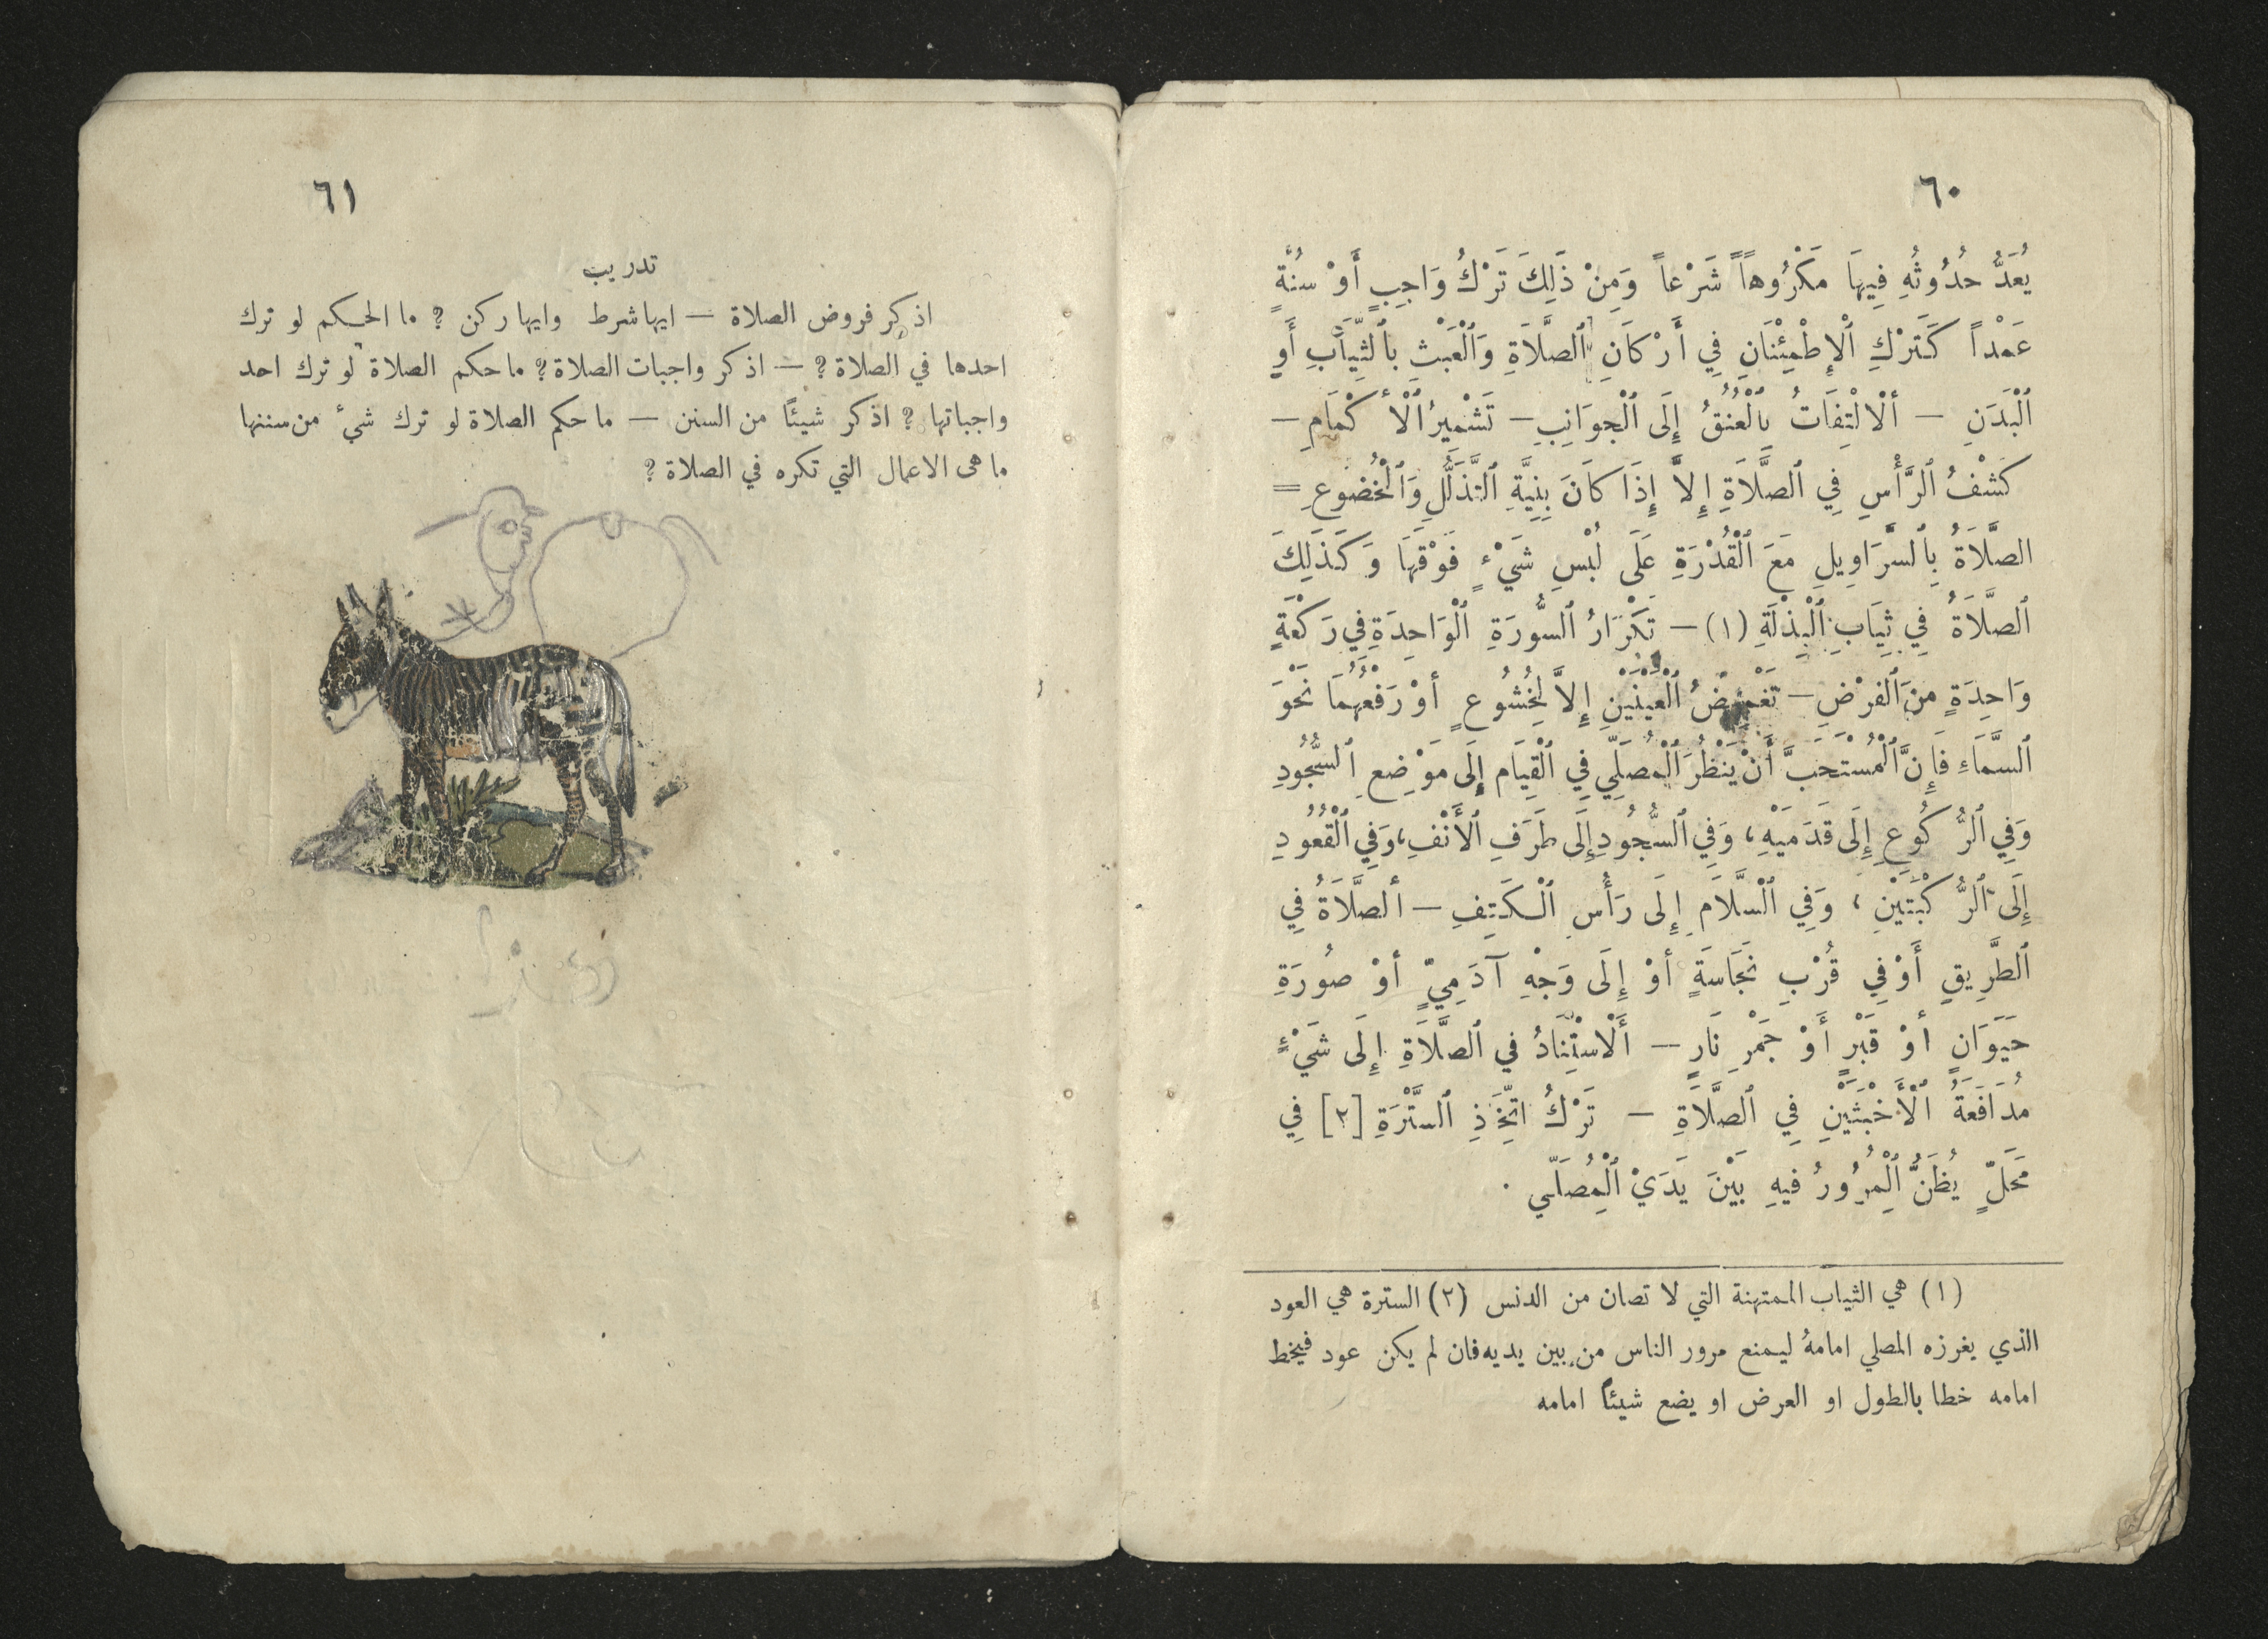 ٦٠
يُعَدُّ حُدُوثُهُ فِيهَا مَكْرُوهاً شَرْعاً وَمِنْ ذَلِكَ تَرْكُ وَاجِبٍ أَوْ سُنَّةٍ
عَمْداً كَتَرْكِ ٱلْإِطْمِئْنَانِ فِي أَرْكَانِ ٱلصَّلَاةِ وَٱلْعَبْثِ بِٱلثِّيَابِ أَوِ
ٱلْبَدَنِ — أَلْالْتِفَاتُ بِالْعُنُقُ إِلَى ٱلْجَوَانِبِ — تَشْمِيرُ ٱلْأَكْمَامِ —
كَشْفُ ٱلرَّأْسِ فِي ٱلصَّلَاةِ إِلاَّ إِذَا كَانَ بِنِيَّةِ ٱلتَّذَلُّلِ وَٱلْخُضُوعِ =
الصَّلَاةُ بِٱلسَّرَاوِيلِ مَعَ ٱلْقُدْرَةِ عَلَى لُبْسِ شَيْءٍ فَوْقَهَا وَكَذَلِكَ
ٱلصَّلَاةُ فِي ثِيَابِ ٱلْبِذْلَةِ (١) — تَكْرَارُ ٱلسُّورَةِ ٱلْوَاحِدَةِ فِي رَكْعَةٍ
وَاحِدَةٍ مِنَ ٱلْفَرْضِ — تَغْمِيضُ ٱلْعَيْنَيْنِ إِلاَّ لِخُشُوعٍ أَوْ رَفْعُهُمَا نَحْوَ
ٱلسَّمَاءِ فَإِنَّ ٱلْمُسْتَحَبَّ أَنْ يَنْظُرَ ٱلْمُصَلِّي فِي ٱلْقِيَامِ إِلَى مَوْضِعِ ٱلسُّجُودِ
وَفِي ٱلرُّكُوعِ إِلَى قَدَمَيْهِ، وَفِي ٱلسُّجُودِ إِلَى طَرَفِ ٱلْأَنْفِ، وَفِي ٱلْقُعُودِ
إِلَى ٱلرُّكْبَتَيْنِ، وَفِي ٱلْسَّلَامِ إِلَى رَأْسِ ٱلْكَتِفِ — أَلصَّلَاةُ فِي
ٱلطَّرِيقِ أَوْ فِي قُرْبِ نَجَاسَةٍ أَوْ إِلَى وَجْهِ آدَمِيٍّ أَوْ صُورَةِ
حَيَوَانٍ أَوْ قَبْرٍ أَوْ جَمْرِ نَارٍ — أَلْاسْتِنَادُ فِي ٱلصَّلَاةِ إِلَى شَيْءٍ
مُدَافَعَةُ ٱلْأَخْبَثَيْنِ فِي ٱلصَّلَاةِ — تَرْكُ اتِّخَذِ ٱلسَّتْرَةِ [٢] فِي
مَحَلٍّ يُظَنُّ ٱلْمُرُورُ فِيهِ بَيْنَ يَدَيْ ٱلْمُصَلِّي .
(١) هي الثياب الممتهنة التي لا تصان من الدنس (٢) السترة هي العود
الذي يغرزه المصلي امامهُ ليمنع مرور الناس من بين يديه فان لم يكن عود فيخط
امامه خطا بالطول او العرض او يضع شيئاً امامه
٦١
تدريب
اذكر فروض الصلاة — ايها شرط وايها ركن ? ما الحكم لو ترك
احدها في الصلاة ? — اذكر واجبات الصلاة ? ما حكم الصلاة لو ترك احد
واجباتها ? اذكر شيئًا من السنن — ما حكم الصلاة لو ترك شيء من سننها
ما هى الاعمال التي تكره في الصلاة ?